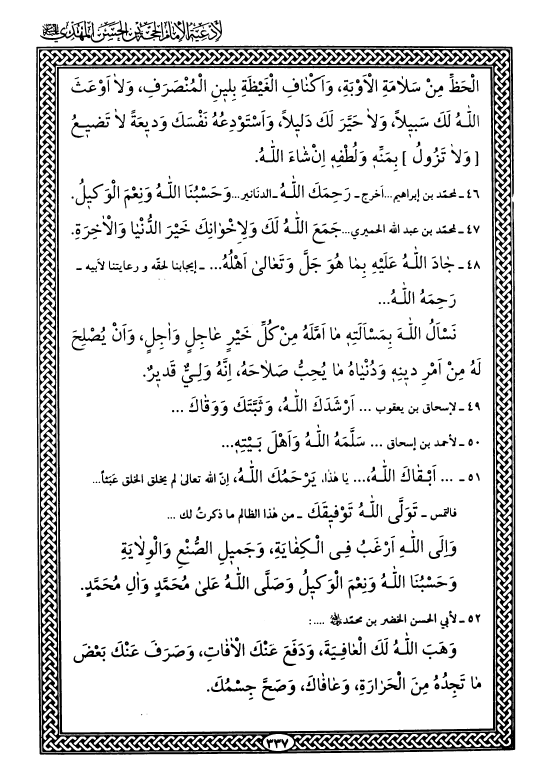 لأدعية الإمام الحجة بن الحسن المهدي
الْحَظِّ مِنْ سَلاٰمَةِ الْاَوْبَةِ، وَاَكْنٰافِ الْغَيْظَةِ بِلينِ الْمُنْصَرَفِ، وَلاٰ اَوْعَثَ
اللّٰهُ لَكَ سَبيلاً، وَلاٰ حَيَّرَ لَكَ دَليلاً، وَاَسْتَوْدِعُهُ نَفْسَكَ وَديعَةً لاٰ تَضيـعُ
[ وَلاٰ تَزُولُ ] بِمَنِّهِ وَلُطْفِهِ اِنْ شٰاءَ اللّٰهُ.
٤٦ ـ لمحمّد بن إبراهيم...أخرج ـ رَحِمَكَ اللّٰهُ ـ الدنانير...وَحَسْبُنَا اللّٰهُ وَنِعْمَ الْوَكيلُ.
٤٧ ـ لمحمّد بن عبد الله الحميري...جَمَعَ اللّٰهُ لَكَ وَلِاِخْوٰانِكَ خَيْرَ الدُّنْيٰا وَالْاٰخِرَةِ.
٤٨ ـ جٰادَ اللّٰهُ عَلَيْهِ بِمٰا هُوَ جَلَّ وَتَعٰالىٰ اَهْلُهُ... ـ إيجابنا لحقّه و رعايتنا لأبيه ـ
رَحِمَهُ اللّٰهُ...
نَسْأَلُ اللّٰهَ بِمَسْأَلَتِهِ مٰا اَمَّلَهُ مِنْ كُلِّ خَيْرٍ عٰاجِلٍ وَاٰجِلٍ، وَاَنْ يُصْلِحَ
لَهُ مِنْ اَمْرِ دينِهِ وَدُنْيٰاهُ مٰا يُحِبُّ صَلاٰحَهُ، اِنَّهُ وَلِيٌّ قَديرٌ.
٤٩ ـ لإسحاق بن يعقوب ... اَرْشَدَكَ اللّٰهُ، وَثَبَّتَكَ وَوَقٰاكَ ...
٥٠ ـ لأحمد بن إسحاق ... سَلَّمَهُ اللّٰهُ وَاَهْلَ بَيْتِهِ...
٥١ ـ ... اَبْقٰاكَ اللّٰهُ،... يا هٰذا، يَرْحَمُكَ اللّٰهُ، إنّ الله تعالىٰ لم يخلق الخلق عبثاً...
فالتمس ـ تَوَلَّى اللّٰهُ تَوْفيقَكَ ـ من هٰذا الظالم ما ذكرتُ لك ...
وَاِلَى اللّٰهِ اَرْغَبُ فِى الْكِفٰايَةِ، وَجَميلِ الصُّنْعِ وَالْوِلاٰيَةِ
وَحَسْبُنَا اللّٰهُ وَنِعْمَ الْوَكيلُ وَصَلَّى اللّٰهُ عَلىٰ مُحَمَّدٍ وَاٰلِ مُحَمَّدٍ.
٥٢ ـ لأبي الحسن الخضر بن محمّد ....:
وَهَبَ اللّٰهُ لَكَ الْعٰافِيَةَ، وَدَفَعَ عَنْكَ الْاٰفٰاتِ، وَصَرَفَ عَنْكَ بَعْضَ
مٰا تَجِدُهُ مِنَ الْحَرٰارَةِ، وَعٰافٰاكَ، وَصَحَّ جِسْمُكَ.
٣٣٧